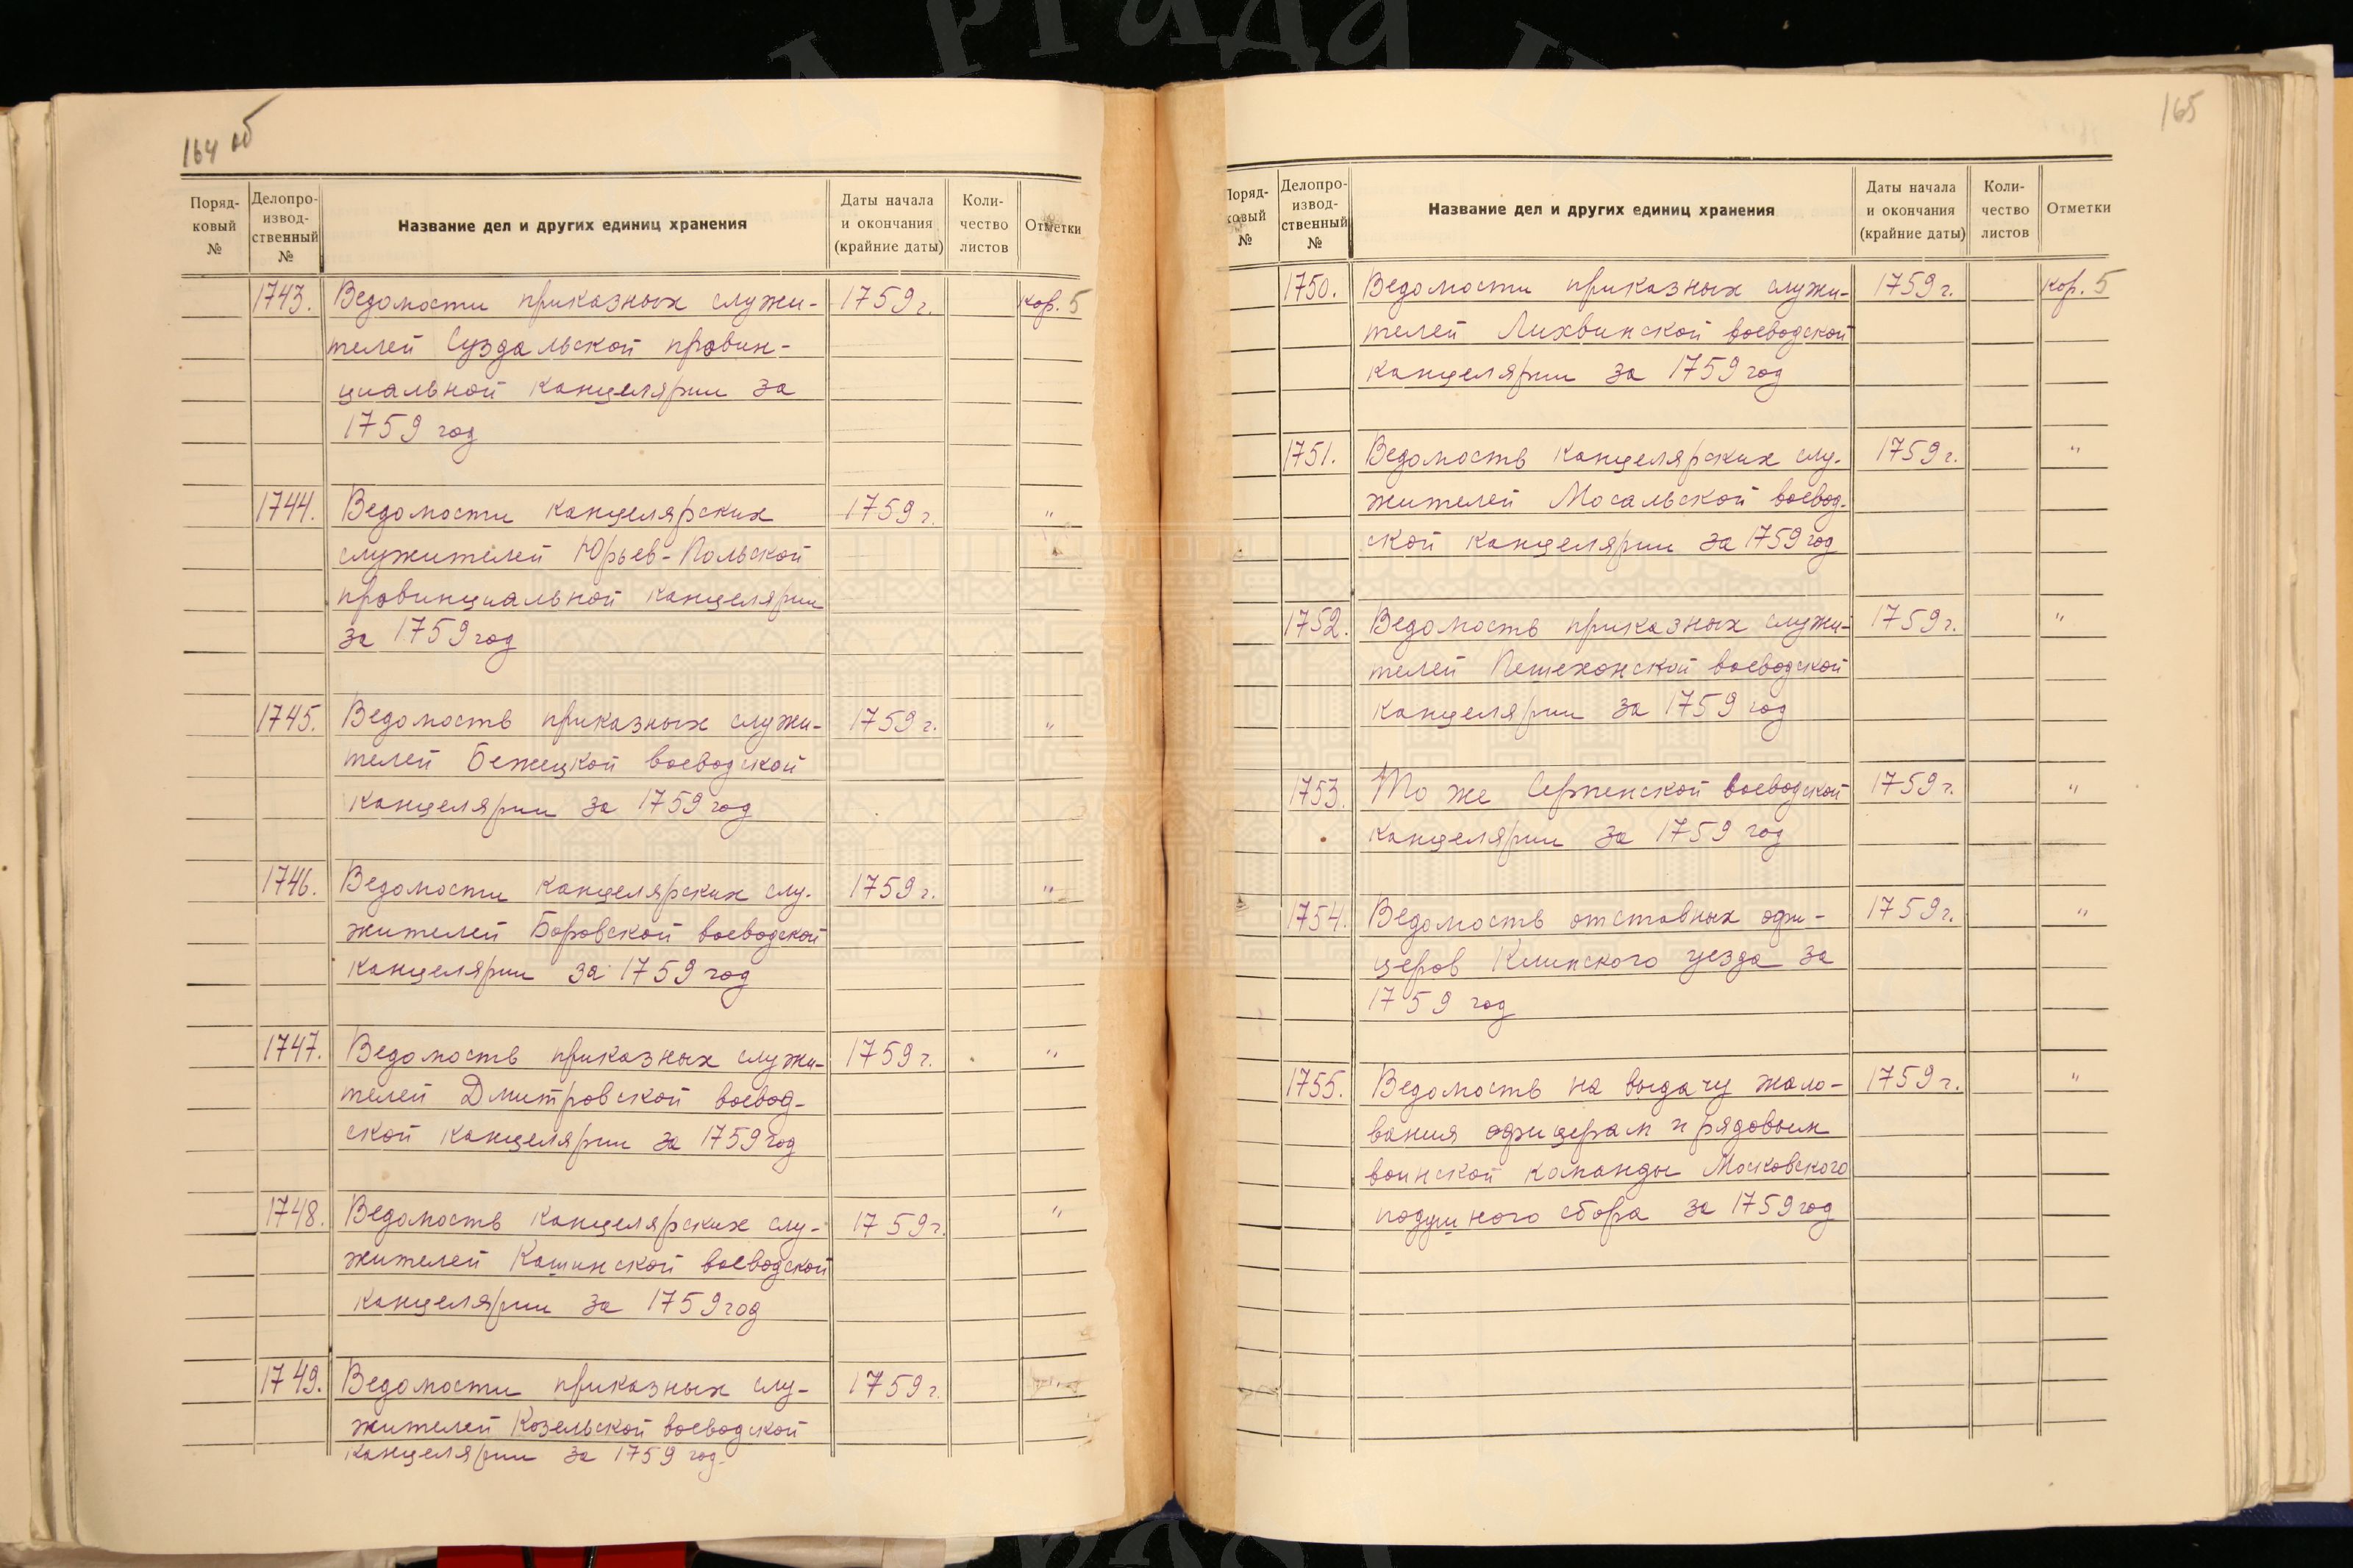 164 об
Поряд-
ковый
№
Делопро-
извод-
ственный
№
Название дел и других единиц хранения
Даты начала
и окончания
(крайние даты)
Коли-
чество
листов
Отметки
1743. Ведомости приказных служи- 1759 г. кор. 5
телей Суздальской провин-
циальной канцелярии за
1759 год
1744. Ведомости канцелярских 1759 г. "
служителей Юрьев-Польской
провинциальной канцелярии
за 1759 год
1745. Ведомость приказных служи- 1759 г. "
телей Бежецкой воеводской
канцелярии за 1759 год
1746. Ведомости канцелярских слу- 1759 г. "
жителей Боровской воеводской
канцелярии за 1759 год
1747. Ведомость приказных служи- 1759 г. "
телей Дмитровской воевод-
ской канцелярии за 1759 год
1748. Ведомость канцелярских слу- 1759 г. "
жителей Кашинской воеводской
канцелярии за 1759 год
1749. Ведомости приказных слу- 1759 г.
жителей Козельской воеводской
канцелярии за 1759 год.
165
Поряд-
ковый
№
Делопро-
извод-
ственный
№
Название дел и других единиц хранения
Даты начала
и окончания
(крайние даты)
Коли-
чество
листов
Отметки
1750. Ведомости приказных служи- 1759 г. кор. 5
телей Лихвинской воеводской
канцелярии за 1759 год
1751. Ведомость канцелярских слу- 1759 г. "
жителей Мосальской воевод-
ской канцелярии за 1759 год
1752. Ведомость приказных служи- 1759 г. "
телей Пешехонской воеводской
канцелярии за 1759 год
1753. То же Серпенской воеводской 1759 г. "
канцелярии за 1759 год
1754. Ведомость отставных офи- 1759 г. "
церов Клинского уезда за
1759 год
1755. Ведомость на выдачу жало- 1759 г. "
вания офицерам и рядовым
воинской команды Московского
подушного сбора за 1759 год